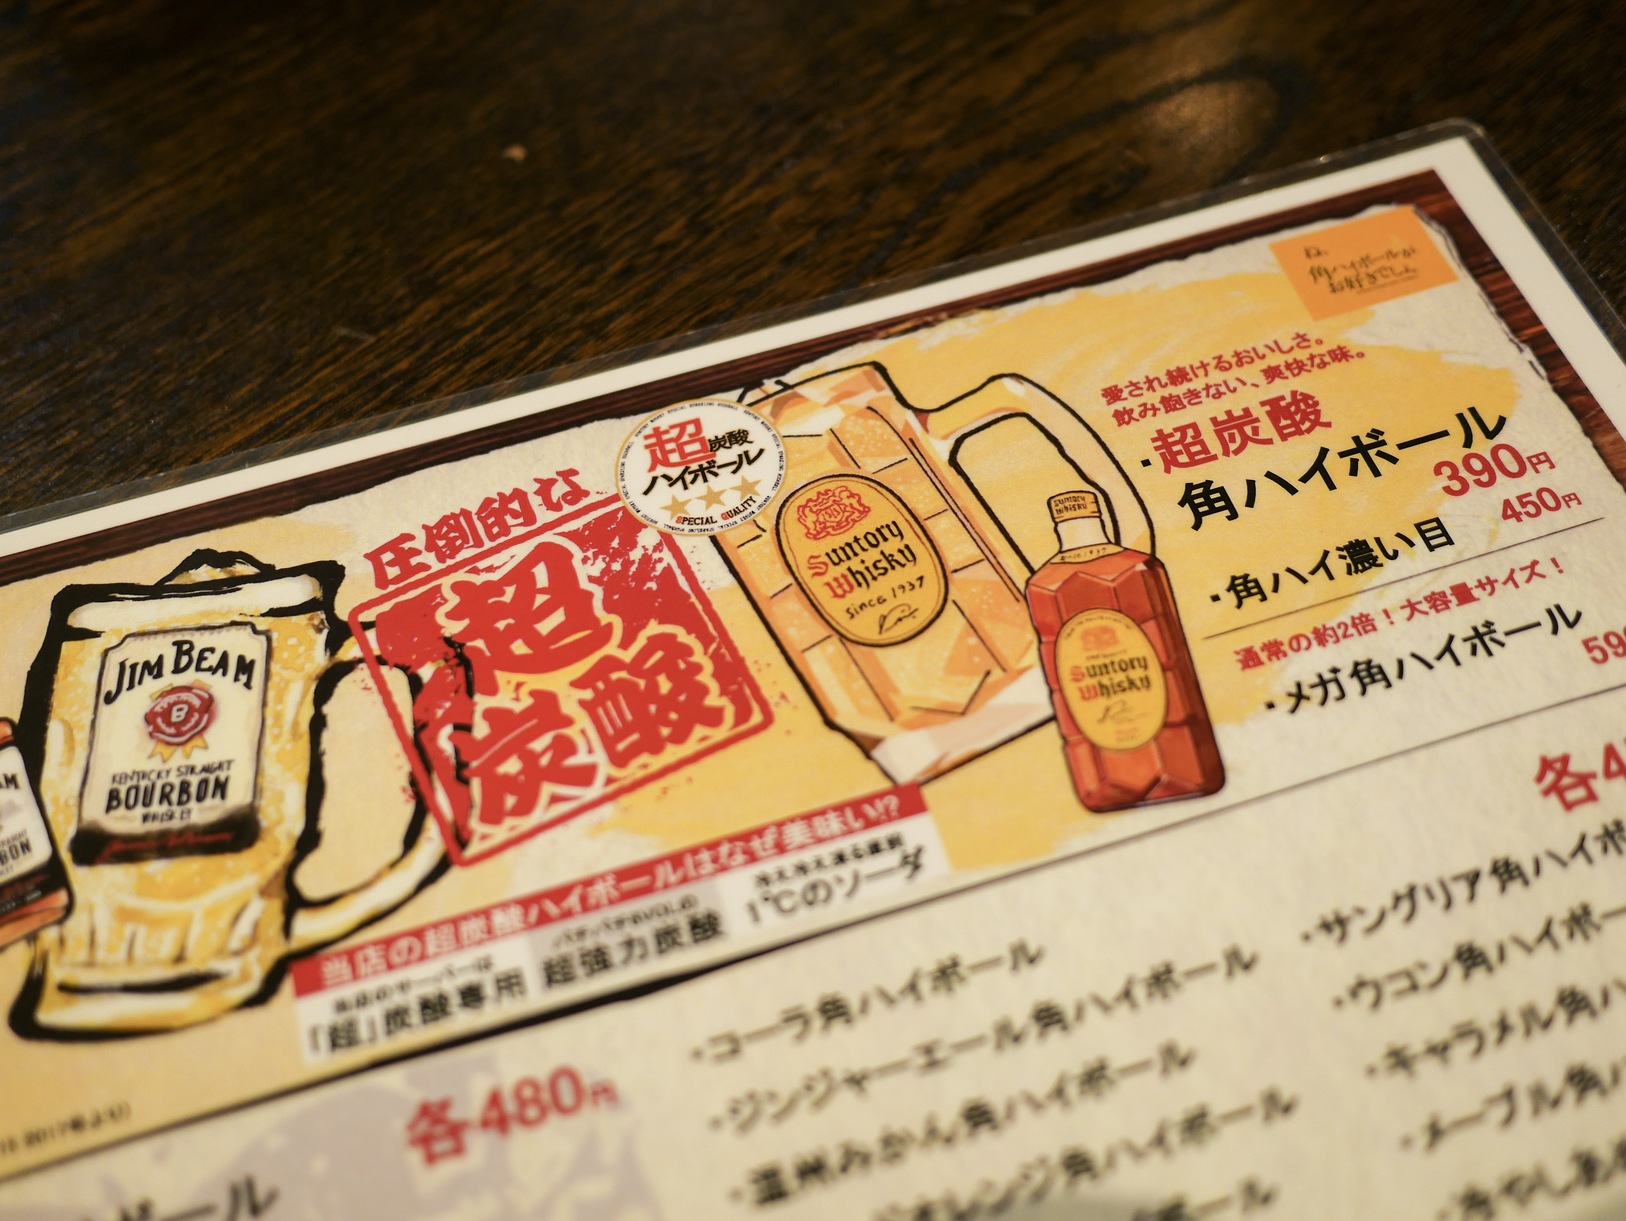 ね、
角ハイボールが
お好きでしょ
愛され続けるおいしさ。
飲み飽きない、爽快な味。
・超炭酸
角ハイボール
390円
・角ハイ濃い目 450円
通常の約2倍！大容量サイズ！
・メガ角ハイボール
59
超炭酸
ハイボール
SPECIAL QUALITY
圧倒的な
超
炭酸
Suntory
Whisky
Since 1937
SUNTORY
WHISKY
Suntory
Whisky
JIM BEAM
B
KENTUCKY STRAIGHT
BOURBON
WHISKEY
当店の超炭酸ハイボールはなぜ美味い!?
当店のサーバーは
「超」炭酸専用
超強力炭酸
1℃のソーダ
各480円
ボール
各4
・コーラ角ハイボール
・ジンジャーエール角ハイボール
・温州みかん角ハイボール
オレンジ角ハイボール
ボール
・サングリア角ハイボ
・ウコン角ハイボー
・キャラメル角ハ
・メープル角ハ
・冷やしあ